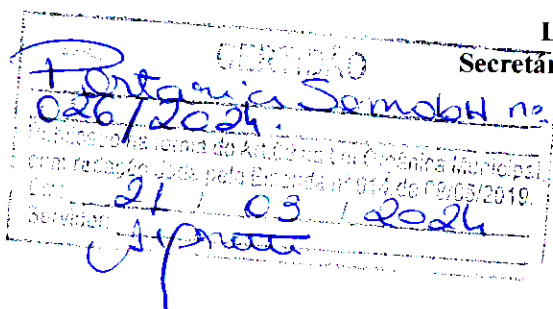 L
Secretár
CERTIDÃO
Portaria Semobh nº
026/2024.
na forma do Art. Lei Orgânica Municipal,
com redação dada pela Emenda nº 014 de 09/05/2019.
Em: 21 / 03 / 2024
Servidor: